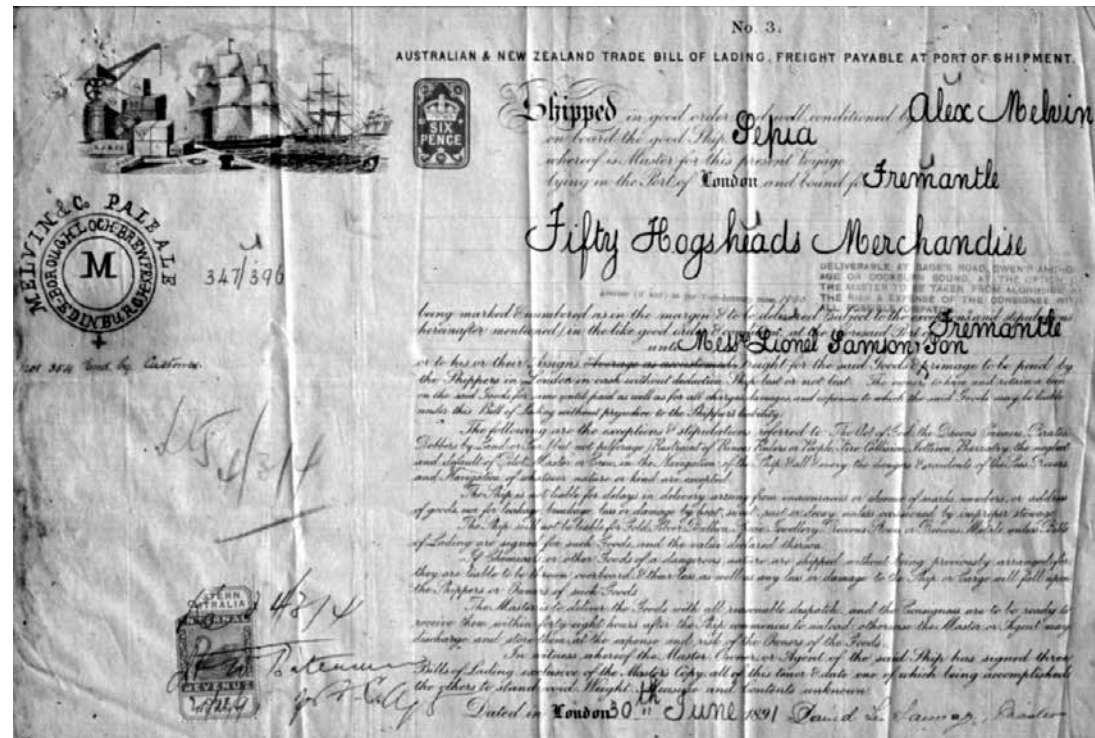 No. 3.
AUSTRALIAN & NEW ZEALAND TRADE BILL OF LADING. FREIGHT PAYABLE AT PORT OF SHIPMENT.
SIX
PENCE
Shipped in good order and well conditioned by Alex Melvin
on board the good Ship Sepia
whereof is Master for this present Voyage
lying in the Port of London and bound for Fremantle
Fifty Hogsheads Merchandise
MELVIN & Co. PALE ALE
BOROUGHLOCH BREWERY
EDINBURGH
M
347/396
THE MASTER TO BE TAKEN FROM ALONGSIDE
THE RISK & EXPENSE OF THE CONSIGNEE
being marked & numbered as in the margin & to be delivered subject to the exceptions and stipulations
hereinafter mentioned, in the like good order & at the aforesaid Port of Fremantle
unto Messrs Lionel Samson & Son
or to his or their Assigns Average as accustomed freight for the said Goods & primage to be paid by
the Shippers in London in cash without deduction Ship lost or not lost. The owner to have and retain a lien
on the said Goods for same until paid as well as for all charges, damages, and expenses to which the said Goods may be liable
under this Bill of Lading without prejudice to the Shippers liability.
The following are the exceptions & stipulations referred to. The Act of God, the Queen's Enemies, Pirates
Robbers by Land or Sea, but not pilferage, Restraint of Princes, Rulers or People, Fire, Collision, Barratry, the neglect
and default of Pilot, Master or Crew, in the Navigation of the Ship & all & every the dangers & accidents of the Seas Rivers
and Navigation of whatever nature or kind are excepted.
The Ship is not liable for delays in delivery arising from inaccuracies or absence of marks numbers, or address
of goods, nor for leakage, breakage, loss or damage by heat, sweat, rust or decay unless occasioned by improper stowage.
The Ship will not be liable for Gold, Silver, Bullion, Specie, Jewellery, Precious Stones or Precious Metals unless Bills
of Lading are signed for such Goods, and the value declared therein
If Chemicals or other Goods of a dangerous nature are shipped without being previously arranged for
they are liable to be thrown overboard & their loss as well as any loss or damage to the Ship or Cargo will fall upon
the Shippers or Owners of such Goods
The Master is to deliver the Goods with all reasonable despatch, and the Consignees are to be ready to
receive them within forty eight hours after the Ship commences to unload, otherwise the Master or Agent may
discharge and store them at the expense and risk of the Owners of the Goods.
In witness whereof the Master, Owner, or Agent of the said Ship has signed three
Bills of Lading exclusive of the Masters Copy, all of this tenor & date one of which being accomplished
the others to stand void. Weight, Measure and Contents unknown.
Dated in London 30th June 1891
INTERNAL
REVENUE